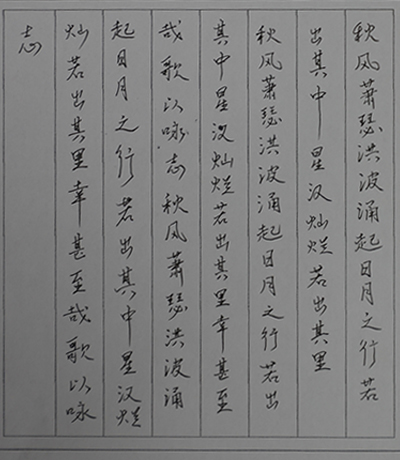 秋风萧瑟洪波涌起日月之行若
出其中星汉灿烂若出其里
秋风萧瑟洪波涌起日月之行若出
其中星汉灿烂若出其里幸甚至
哉歌以咏志秋风萧瑟洪波涌
起日月之行若出其中星汉烂
灿若出其里幸甚至哉歌以咏
志